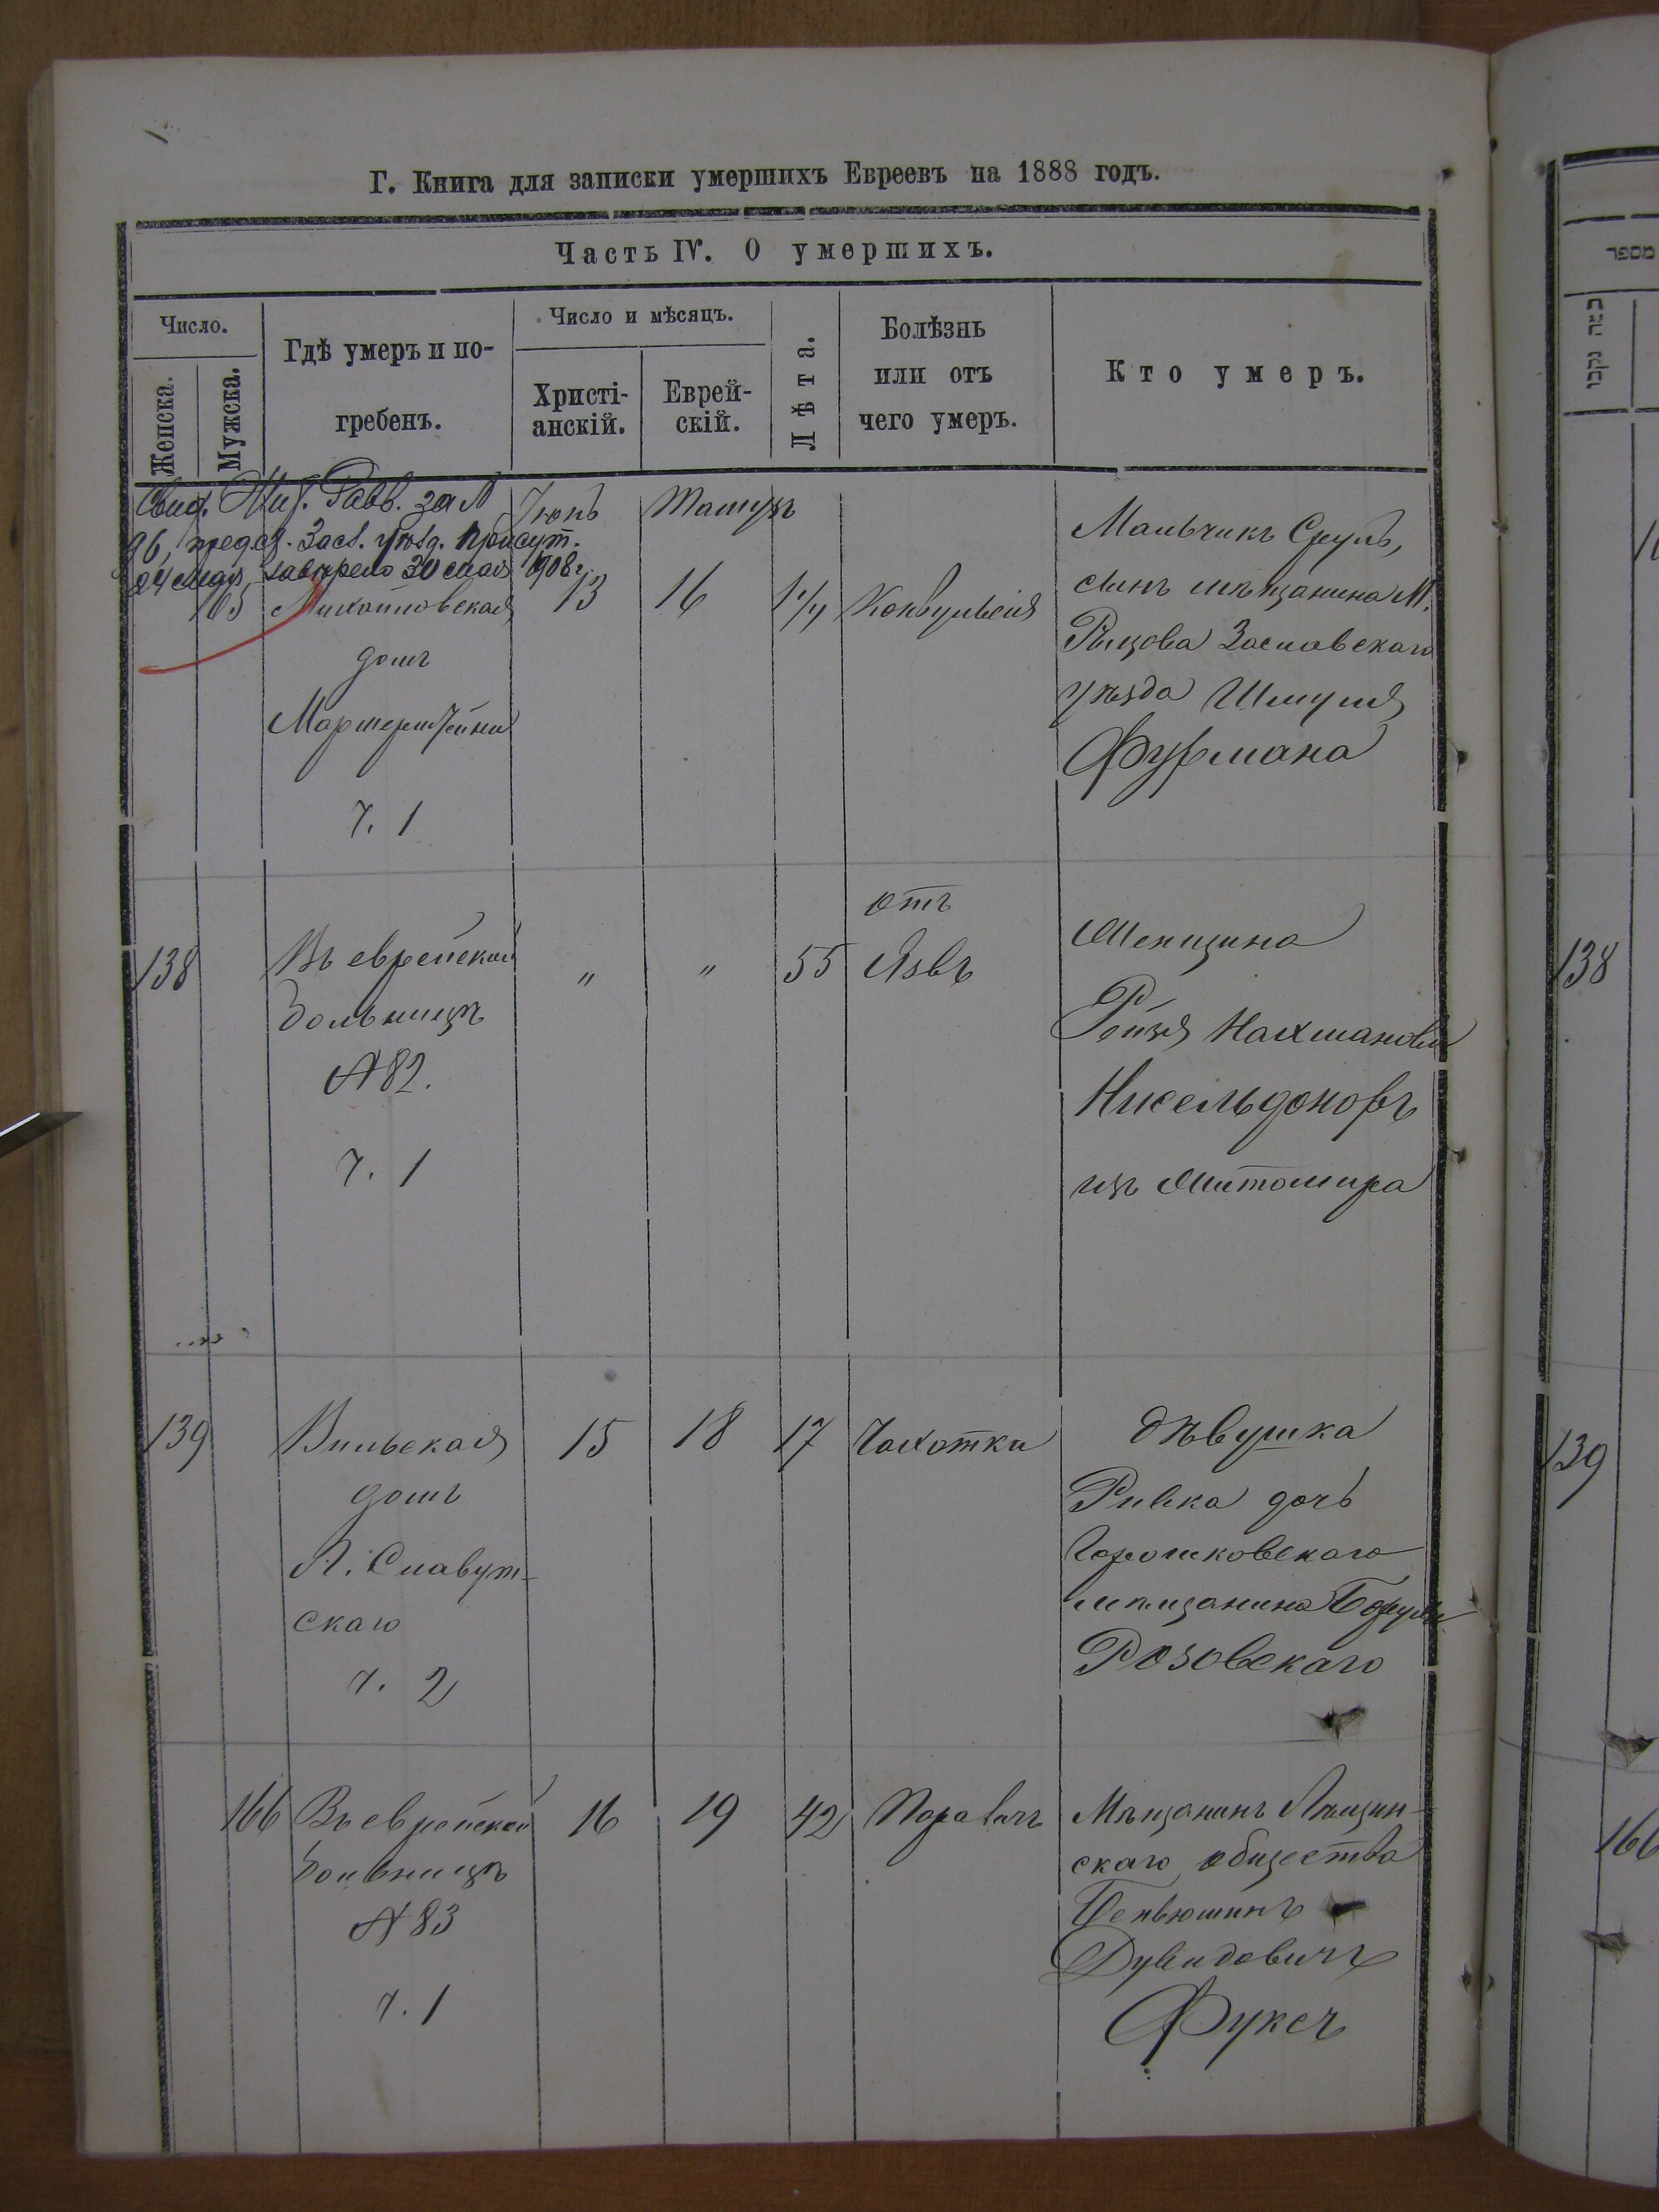 Г. Книга для записки умершихъ Евреевъ на 1888 годъ.
Часть IV. О умершихъ.
Число.
Женска.
Мужска.
Гдѣ умеръ и по-
гребенъ.
Число и мѣсяцъ.
Христі-
анскій.
Еврей-
скій.
Лѣта.
Болѣзнь
или отъ
чего умеръ.
Кто умеръ.
Свид. Жит. Равв. за №
96, предст. Засл. уѣзд. присут.
24 мая, завѣрено 30 мая 908 г.
Іюнь
Тамузъ
165
Михайловская
домъ
ч. 1
13
16
Конвульсія
Мальчикъ Сруль,
сынъ мѣщанина М.
Заславскаго
уѣзда Шмуля
Фурмана
138
Въ еврейской
больницѣ
№ 82.
ч. 1
"
"
55
отъ
Язвъ
Женщина
Ройзя Нахманова
Нисельдоноръ
изъ Житомира
139
Вильская
домъ
Л. Славут-
скаго
ч. 2
15
18
17
Чахотки
Дѣвушка
Ривка дочь
Горошковскаго
мѣщанина Боруха
Розовскаго
166
Въ еврейской
больницѣ
№ 83
ч. 1
16
19
42
Мѣщанинъ Лѣщин-
скаго общества
Беньюминъ
Дувидовичъ
Фуксъ
מספר
138
139
166